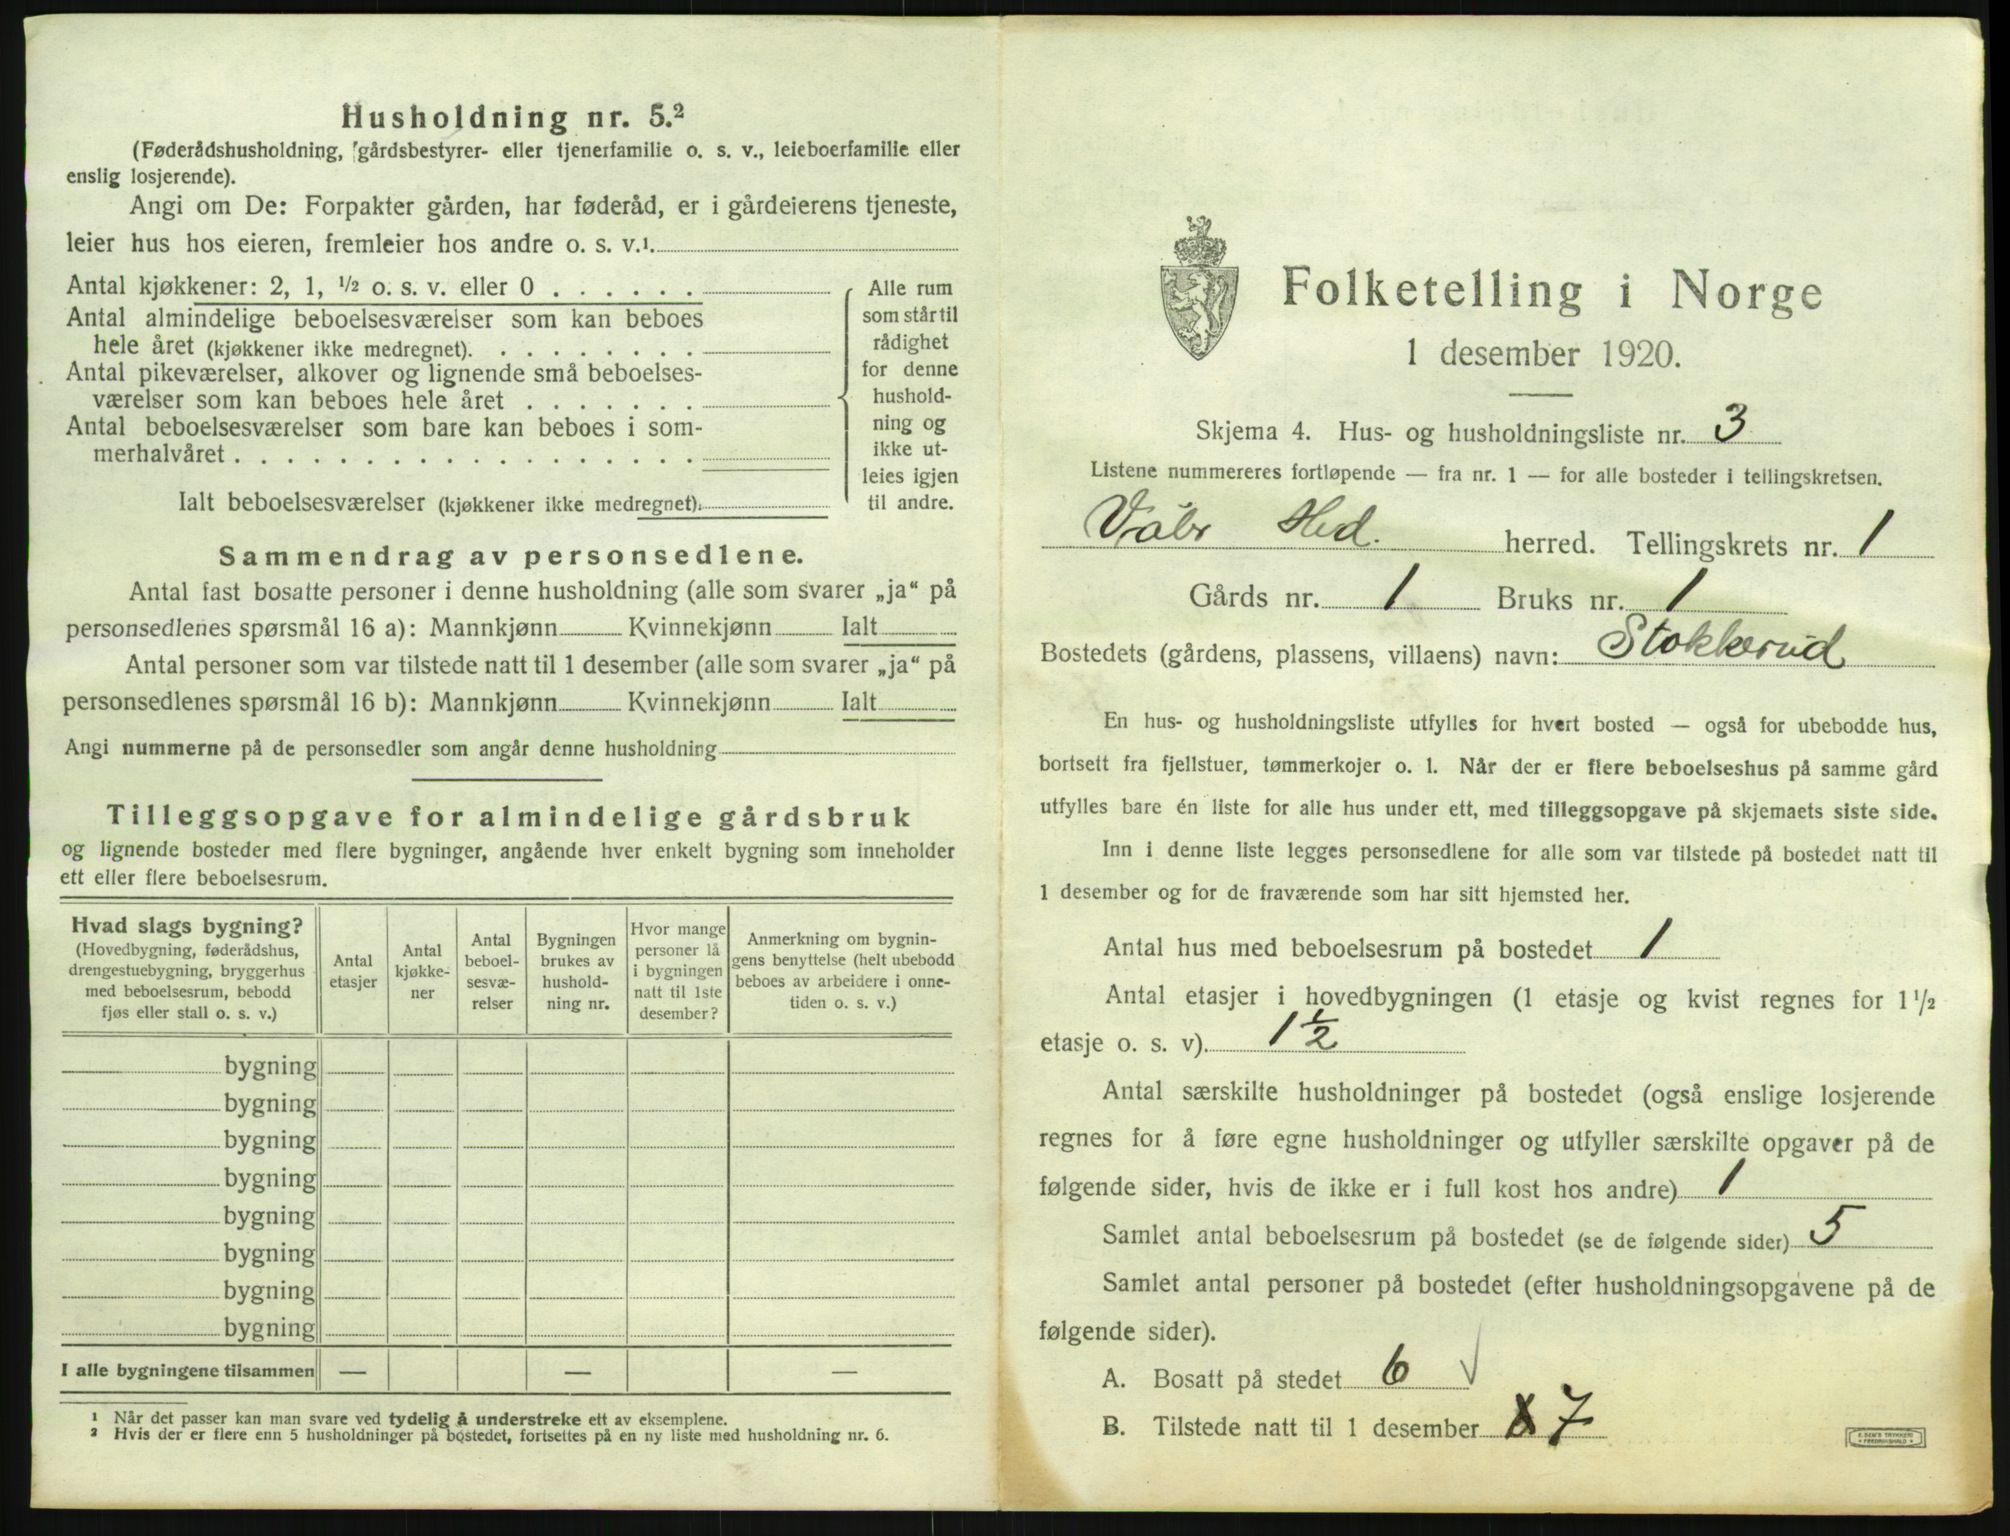 Husholdning nr. 5.²
(Føderådshusholdning, gårdsbestyrer- eller tjenerfamilie o. s. v., leieboerfamilie eller
enslig losjerende).
Angi om De: Forpakter gården, har føderåd, er i gårdeierens tjeneste,
leier hus hos eieren, fremleier hos andre o. s. v.¹
Antal kjøkkener: 2, 1, ½ o. s. v. eller 0 . . . . . .
Antal almindelige beboelsesværelser som kan beboes
hele året (kjøkkener ikke medregnet). . . . . . . . .
Antal pikeværelser, alkover og lignende små beboelses-
værelser som kan beboes hele året . . . . . . .
Antal beboelsesværelser som bare kan beboes i som-
merhalvåret . . . . . . . . . . . . . . . . . .
Ialt beboelsesværelser (kjøkkener ikke medregnet).
Alle rum
som står til
rådighet
for denne
hushold-
ning og
ikke ut-
leies igjen
til andre.
Sammendrag av personsedlene.
Antal fast bosatte personer i denne husholdning (alle som svarer „ja“ på
personsedlenes spørsmål 16 a): Mannkjønn Kvinnekjønn Ialt
Antal personer som var tilstede natt til 1 desember (alle som svarer „ja“ på
personsedlenes spørsmål 16 b): Mannkjønn Kvinnekjønn Ialt
Angi nummerne på de personsedler som angår denne husholdning
Tilleggsopgave for almindelige gårdsbruk
og lignende bosteder med flere bygninger, angående hver enkelt bygning som inneholder
ett eller flere beboelsesrum.
Hvad slags bygning?
(Hovedbygning, føderådshus,
drengestuebygning, bryggerhus
med beboelsesrum, bebodd
fjøs eller stall o. s. v.)
Antal
etasjer
Antal
kjøkke-
ner
Antal
beboel-
sesvæ-
relser
Bygningen
brukes av
hushold-
ning nr.
Hvor mange
personer lå
i bygningen
natt til 1ste
desember?
Anmerkning om bygnin-
gens benyttelse (helt ubebodd
beboes av arbeidere i onne-
tiden o. s. v.)
bygning
bygning
bygning
bygning
bygning
bygning
bygning
bygning
I alle bygningene tilsammen — — —
¹ Når det passer kan man svare ved tydelig å understreke ett av eksemplene.
² Hvis der er flere enn 5 husholdninger på bostedet, fortsettes på en ny liste med husholdning nr. 6.
Folketelling i Norge
1 desember 1920.
Skjema 4. Hus- og husholdningsliste nr. 3
Listene nummereres fortløpende — fra nr. 1 — for alle bosteder i tellingskretsen.
Våler Hed. herred. Tellingskrets nr. 1
Gårds nr. 1 Bruks nr. 1
Bostedets (gårdens, plassens, villaens) navn: Stokkerud
En hus- og husholdningsliste utfylles for hvert bosted — også for ubebodde hus,
bortsett fra fjellstuer, tømmerkojer o. l. Når der er flere beboelseshus på samme gård
utfylles bare én liste for alle hus under ett, med tilleggsopgave på skjemaets siste side.
Inn i denne liste legges personsedlene for alle som var tilstede på bostedet natt til
1 desember og for de fraværende som har sitt hjemsted her.
Antal hus med beboelsesrum på bostedet 1
Antal etasjer i hovedbygningen (1 etasje og kvist regnes for 1 ½
etasje o. s. v). 1 ½
Antal særskilte husholdninger på bostedet (også enslige losjerende
regnes for å føre egne husholdninger og utfyller særskilte opgaver på de
følgende sider, hvis de ikke er i full kost hos andre) 1
Samlet antal beboelsesrum på bostedet (se de følgende sider) 5
Samlet antal personer på bostedet (efter husholdningsopgavene på de
følgende sider).
A. Bosatt på stedet 6 √
B. Tilstede natt til 1 desember 7
FREDRIKSHALD